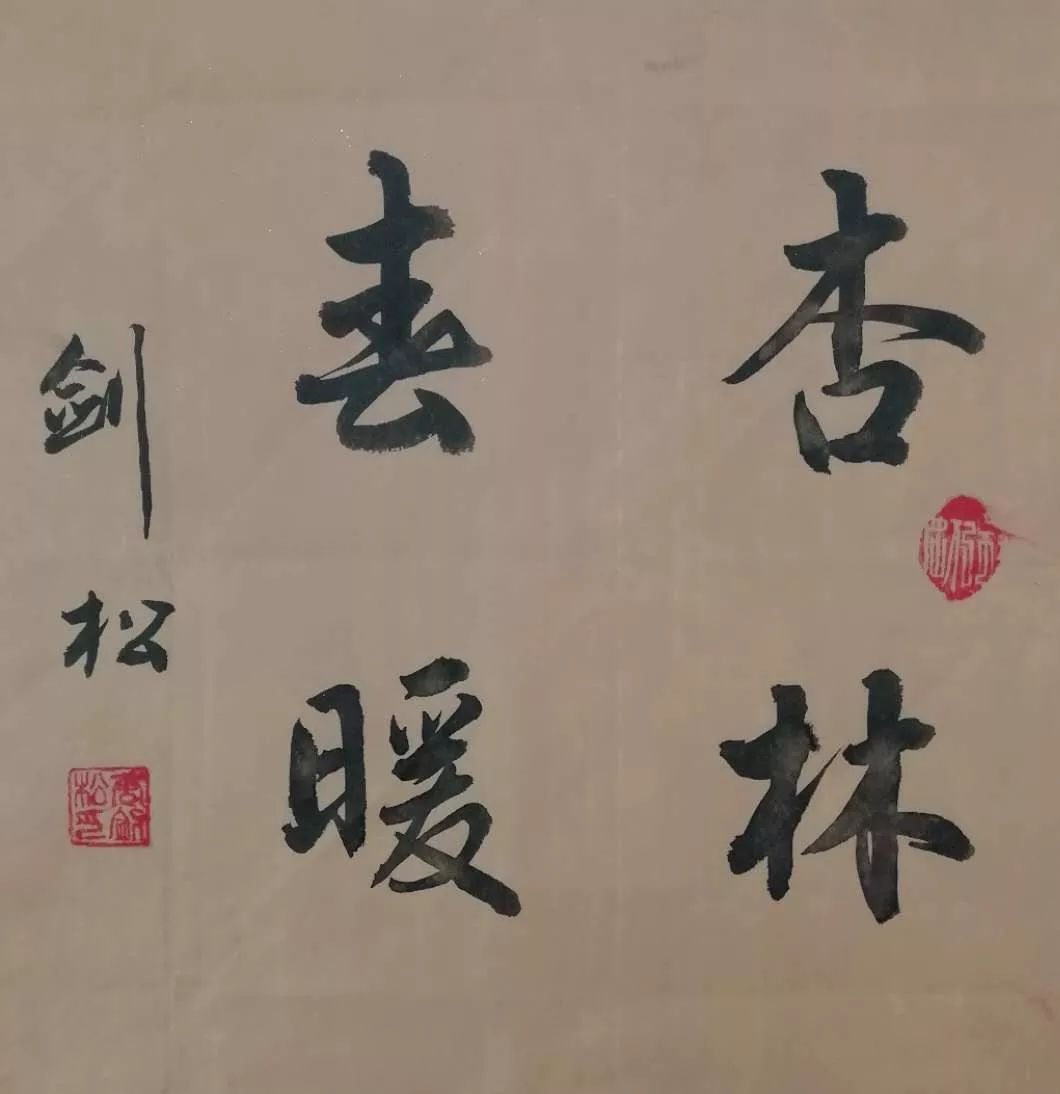 杏林
春暖
剑松